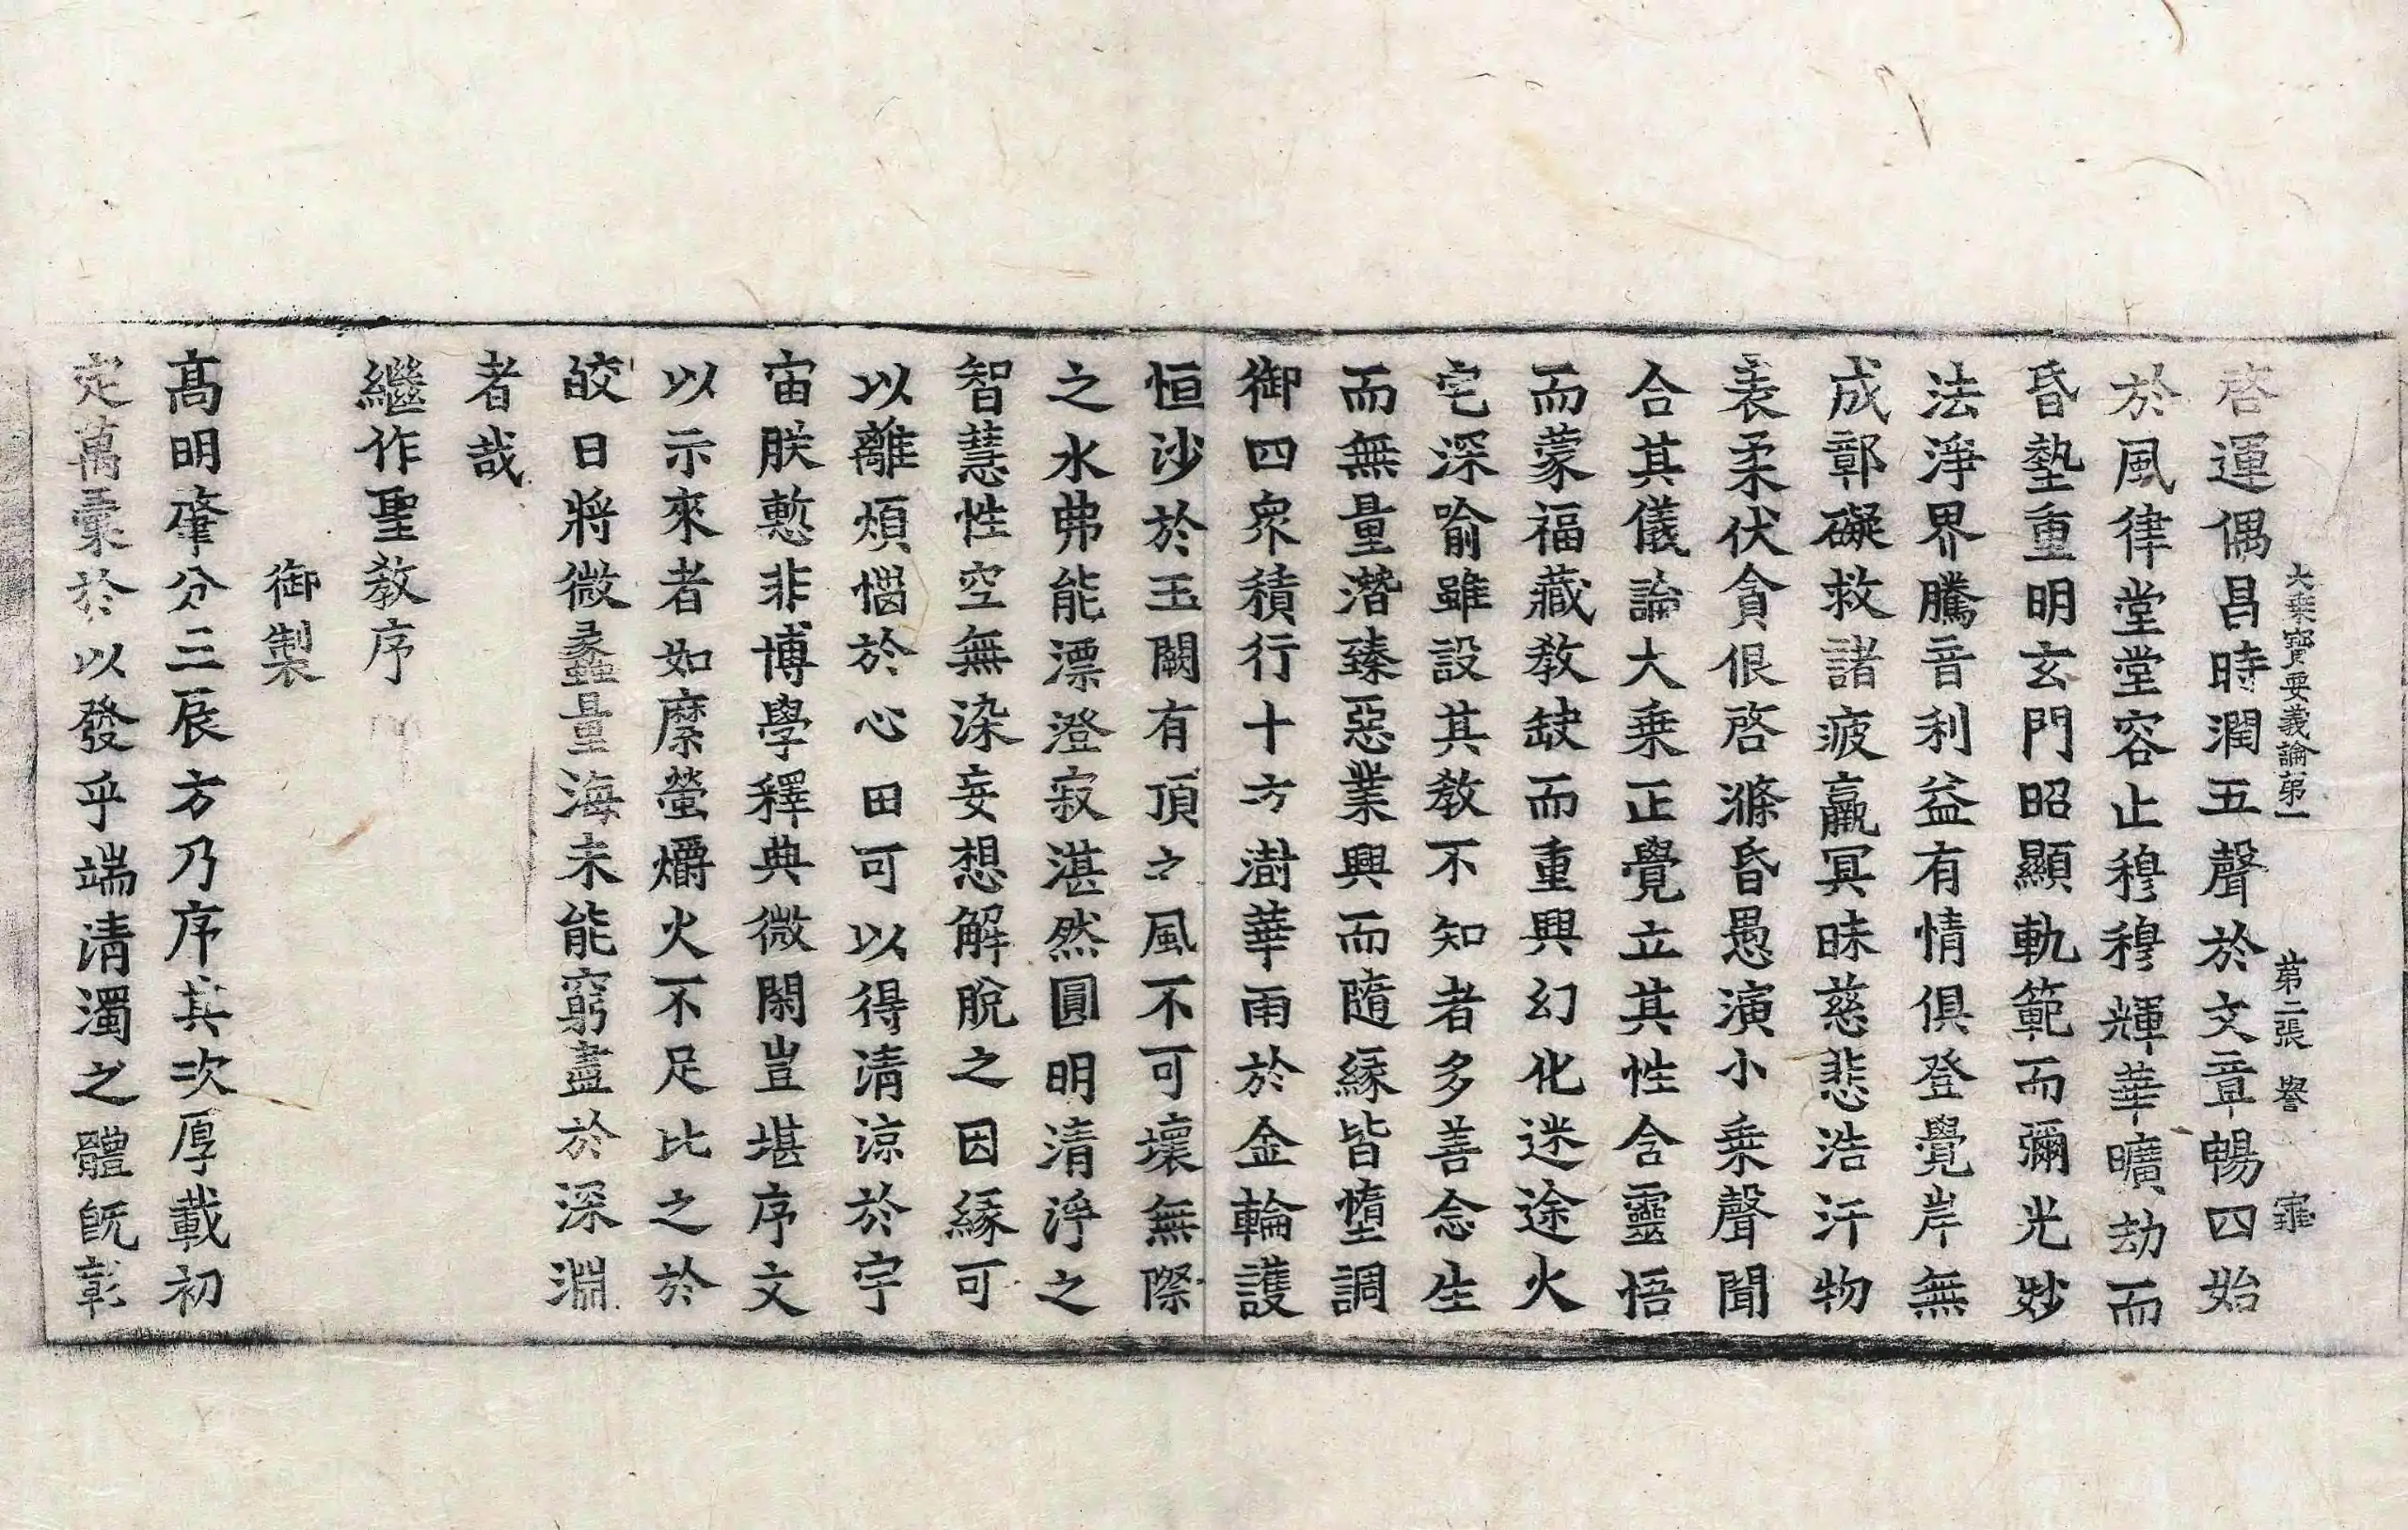 大乗寳要義論第一　第二張　譽　寵
啓運偶昌時潤五聲於文章暢四始
於風律堂堂容止穆穆輝華曠劫而
昏墊重明玄門昭顯軌範而彌光妙
法淨界騰音利益有情俱登覺岸無
成鄣礙救諸疲羸冥昧慈悲浩汗物
表柔伏貪佷啓滌昏愚演小乗聲聞
合其儀論大乗正覺立其性含靈悟
而蒙福藏教缺而重興幻化迷途火
宅深喻雖設其教不知者多善念生
而無量潛臻惡業興而隨緣皆墮調
御四衆積行十方澍華雨於金輪護
恒沙於玉闕有頂之風不可壞無際
之水弗能漂澄寂湛然圓明清淨之
智慧性空無染妄想解脫之因緣可
以離煩惱於心田可以得清涼於宇
宙朕慙非博學釋典微閑豈堪序文
以示來者如縻螢爝火不足比之於
皎日將微蠡量海未能窮盡於深淵
者哉
繼作聖教序
御製
髙明肇分三辰方乃序其次厚載初
定萬彙於以發乎端清濁之體旣彰